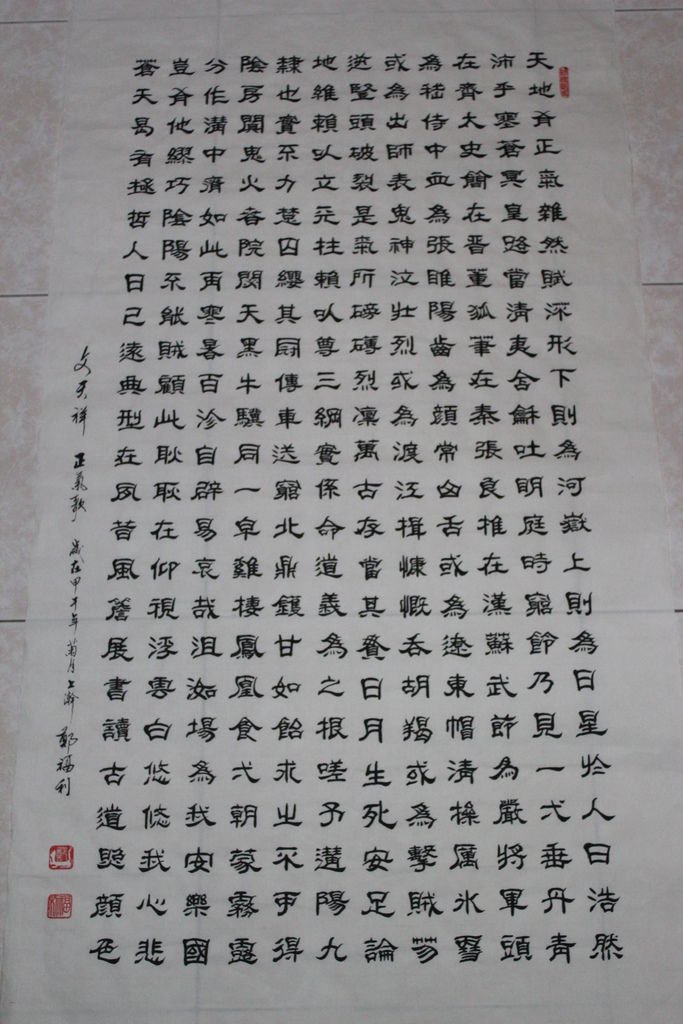 天地有正氣雜然賦流形下則為河嶽上則為日星於人曰浩然
沛乎塞蒼冥皇路當清夷含龢吐明庭時窮節乃見一弌垂丹青
在齊太史簡在晉董狐筆在秦張良椎在漢蘇武節為嚴將軍頭
為嵇侍中血為張睢陽齒為顏常山舌或為遼東帽清操厲冰雪
或為出師表鬼神泣壯烈或為渡江楫慷慨吞胡羯或為擊賊笏
逆豎頭破裂是氣所磅礴烈凜萬古存當其貫日月生死安足論
地維賴以立天柱賴以尊三綱實係命道義為之根嗟予遘陽九
隸也實不力楚囚纓其冠傳車送窮北鼎鑊甘如飴求之不可得
陰房闃鬼火春院閟天黑牛驥同一皁雞棲鳳凰食弌朝蒙霧露
分作溝中瘠如此再寒暑百沴自辟易哀哉沮洳場為我安樂國
豈有他繆巧陰陽不能賊顧此耿耿在仰視浮雲白悠悠我心悲
蒼天曷有極哲人日已遠典型在夙昔風簷展書讀古道照顏色
文天祥 正氣歌 歲在甲午年菊月上澣 鄭福利